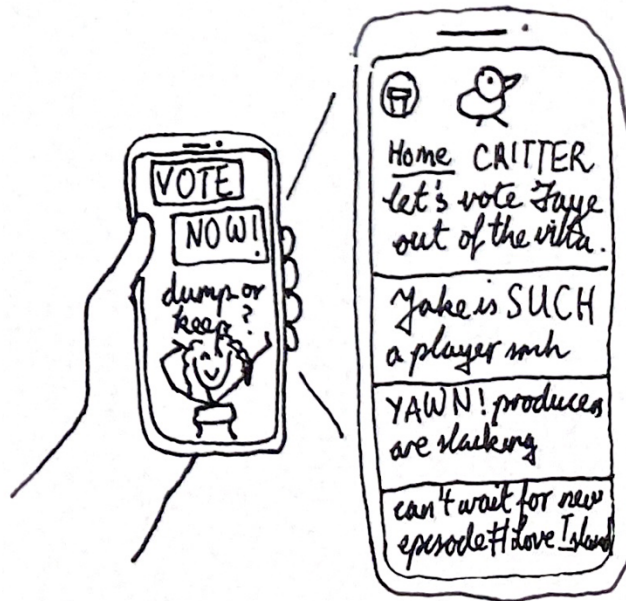 VOTE
NOW!
dump or
keep?
Home CRITTER
let's vote Faye
out of the villa.
Jake is SUCH
a player smh
YAWN! producers
are slacking
can't wait for new
episode #Love Island